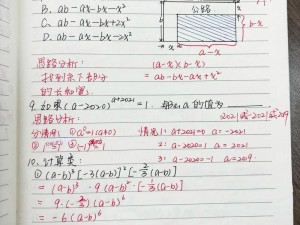 B. ab-ax-bx-x²
C. ab-ax-bx+2x²
D. ab-ax-bx-2x²
公路
b-x
a-x
思路分析:
(a-x)(b-x)
找到余下部分
= ab-bx-ax+x²
的长和宽.
9. 如果(a-2020)^(a+2021)=1. 那么a的值为
思路分析:
2021或-2021或2019
分情况: ① a⁰=1(a≠0)
情况1: a+2021=0 a=-2021
2: a-2020=1 a=2021
3: a-2020=-1 a=2019
10. 计算题:
① (a-b)³[-3(a-b)]²[-2/3(a-b)]
= (a-b)³·9(a-b)²·[-2/3(a-b)]
= 9·(-2/3)(a-b)⁶
= -6(a-b)⁶